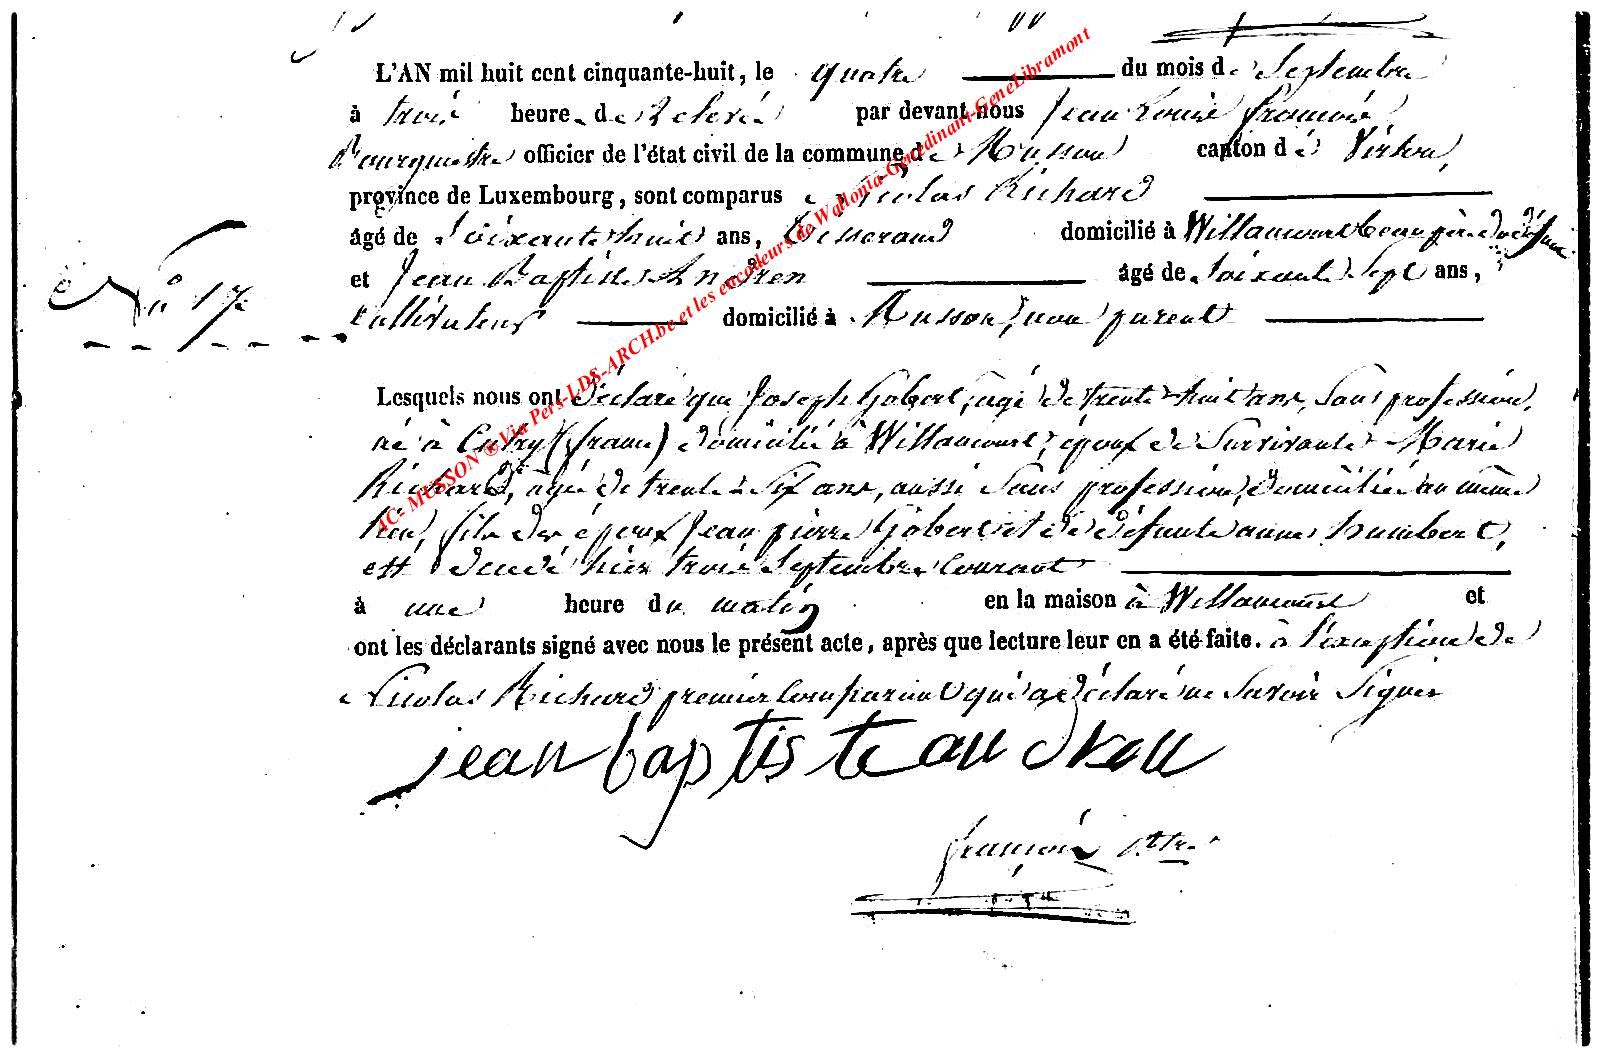 L'AN mil huit cent cinquante-huit, le quatre du mois de Septembre
à trois heure de Relevé par devant nous Jean Louis François
Bourgmestre officier de l'état civil de la commune de Musson canton de Virton,
province de Luxembourg, sont comparus Nicolas Richard
âgé de Soixante huit ans, Tisserand domicilié à Willancourt beau père du défunt
et Jean Baptiste Andren âgé de Soixante Sept ans,
Cultivateur domicilié à Musson, non parent
N° 17
Lesquels nous ont déclaré que Joseph Gobert, agé de trente huit ans, Sans profession,
né à Cutry (france) domicilié à Willancourt, époux de Survivante Marie
Richard, agée de trente Six ans, aussi Sans profession, domiciliée au même
lieu, fils des époux Jean pierre Gobert et de défunte anne humbert,
est décédé hier trois Septembre Courant
à une heure du matin en la maison à Willancourt et
ont les déclarants signé avec nous le présent acte, après que lecture leur en a été faite. à l'exception de
Nicolas Richard premier Comparant qui a déclaré ne Savoir Signer
jean baptiste andren
françois
AC- MUSSON ® Via Pers-LDS-ARCH.be et les encodeurs de Wallonia-Genedinant-GeneLibramont